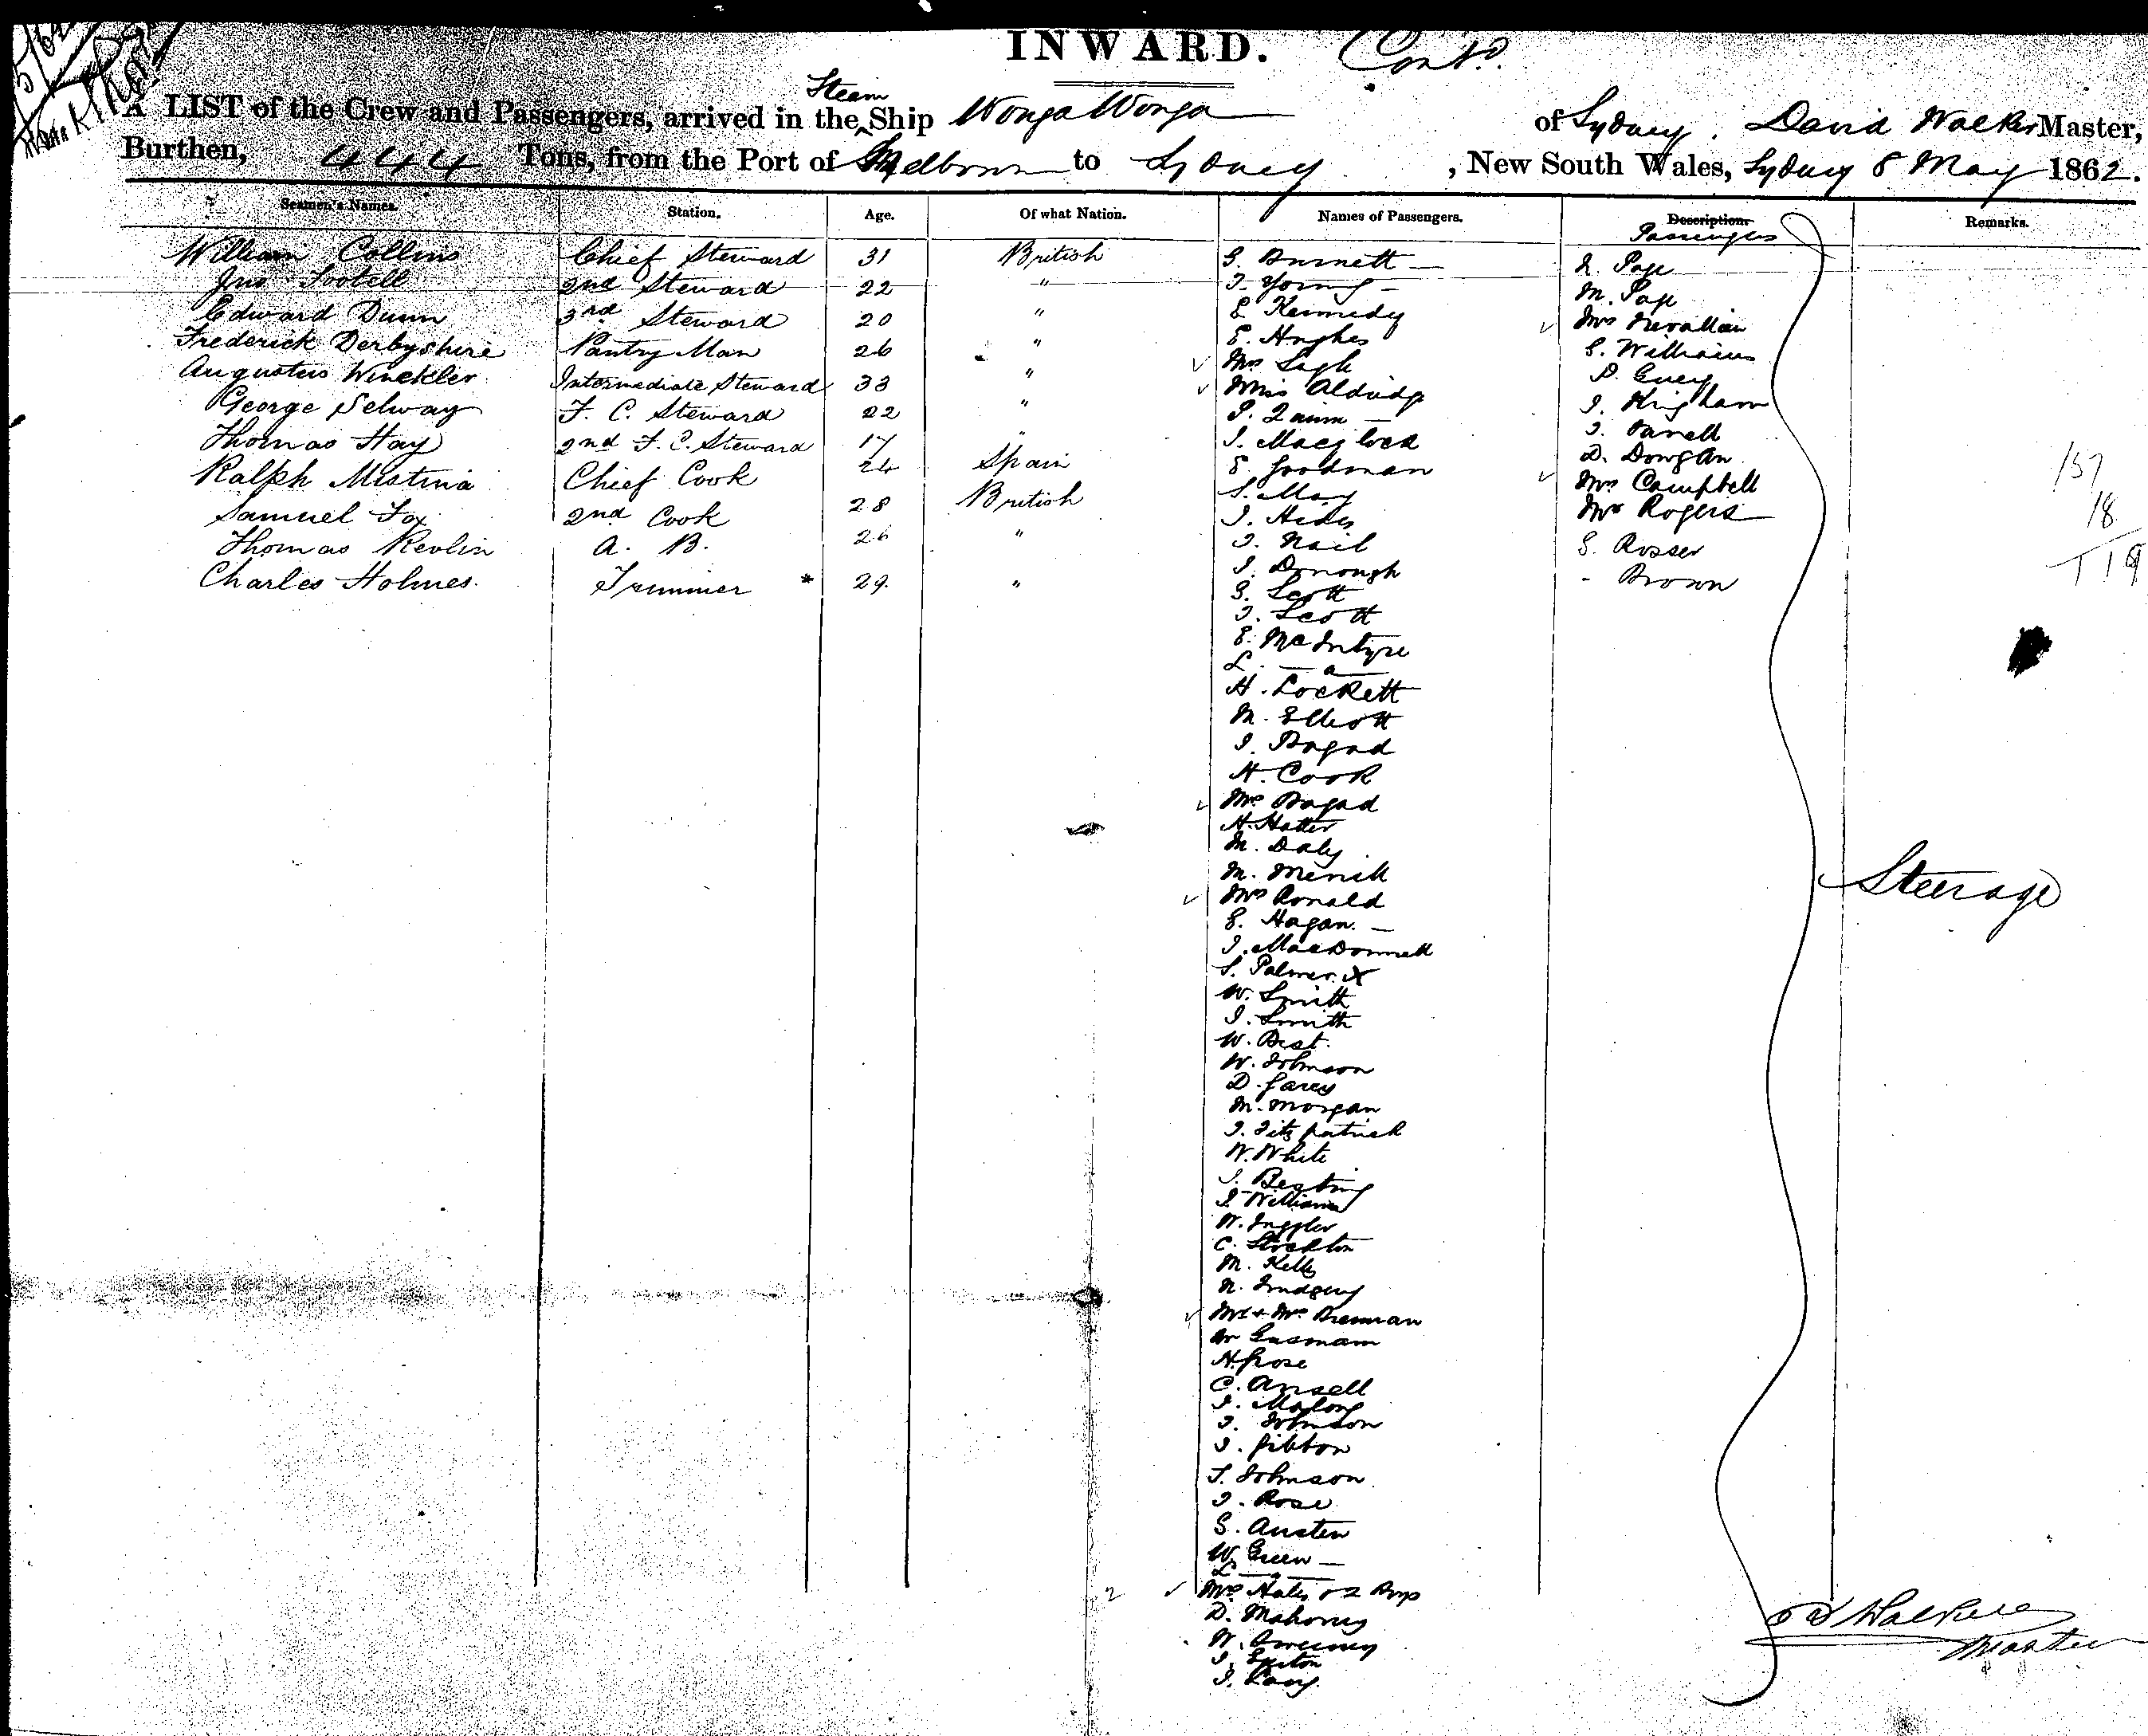 INWARD. Contd.
A LIST of the Crew and Passengers, arrived in the Steam Ship Wonga Wonga of Sydney, David Walker Master,
Burthen, 444 Tons, from the Port of Melbourne to Sydney, New South Wales, Sydney 8 May 1862.
Seamen's Names. Station. Age. Of what Nation. Names of Passengers. Description. Remarks.
Passengers
William Collins Chief Steward 31 British
Jno Footell 2nd Steward 22 "
Edward Dunn 3rd Steward 20 "
Frederick Derbyshire Pantry Man 26 "
Augustus Winckler Intermediate Steward 33 "
George Selway F. C. Steward 22 "
Thomas Hay 2nd F. C. Steward 17 "
Ralph Mistina Chief Cook 24 Spain
Samuel Fox 2nd Cook 28 British
Thomas Revlin A. B. 26 "
Charles Holmes. Trimmer * 29. "
G. Burnett —
J. Young —
E. Kennedy
E. Hughes
Mrs
Miss Aldridge
P. Quinn —
J.
E. Goodman
S. May
J.
J. Nail
J. Donough
G. Scott
J. Scott
E. McIntyre
L. — " —
H. Lockett
M. Elliott
J. Bagad
H. Cook
Mrs Bagad
H. Hatter
M. Daly
M.
Mrs Ronald
E. Hagan. —
J. MacDonnell
S. Palmer. X
W. Smith
J. Smith
W. Best.
W. Johnson
D. Garey
M. Morgan
J. Fitzpatrick
W. White
J.
J. Williams
W.
C. Stockton
M. Kelly
N.
Mr & Mrs Brennan
W
H. Grose
C. Ansell
J. Malony
J. Johnson
J. Gibbon
T. Johnson
J. Rose
G. Austen
W. Green —
L — " —
2 Mrs Hales & 2 Boys
D. Mahoney
W. Sweeney
J.
J. Lang.
N. Page
M. Page
Mrs
G. Williams
P.
J. Kingham
J. Farrell
D. Dougan
Mrs Campbell
Mrs Rogers
G. Rosser
- Brown
137
18
119
Steerage
D Walker
Master